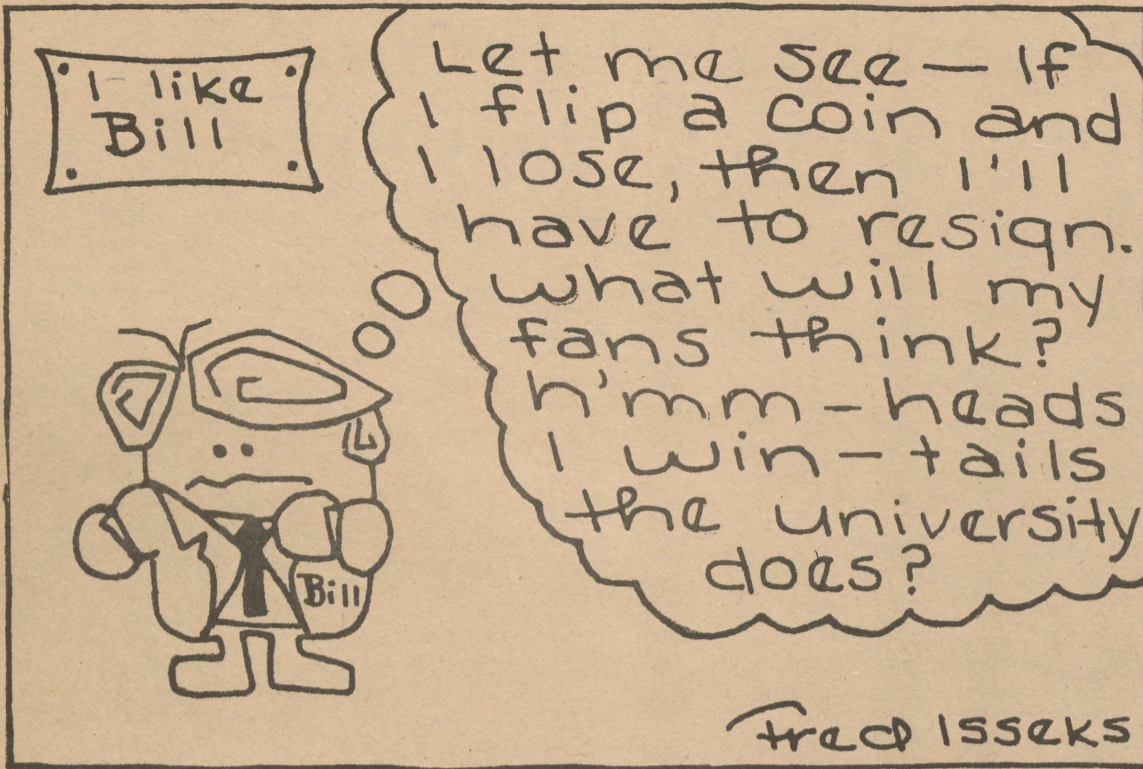 I like
Bill
Let me see — If
I flip a coin and
I lose, then I'll
have to resign.
what will my
fans think?
h'mm — heads
I win — tails
the university
does?
Bill
Fred Isseks